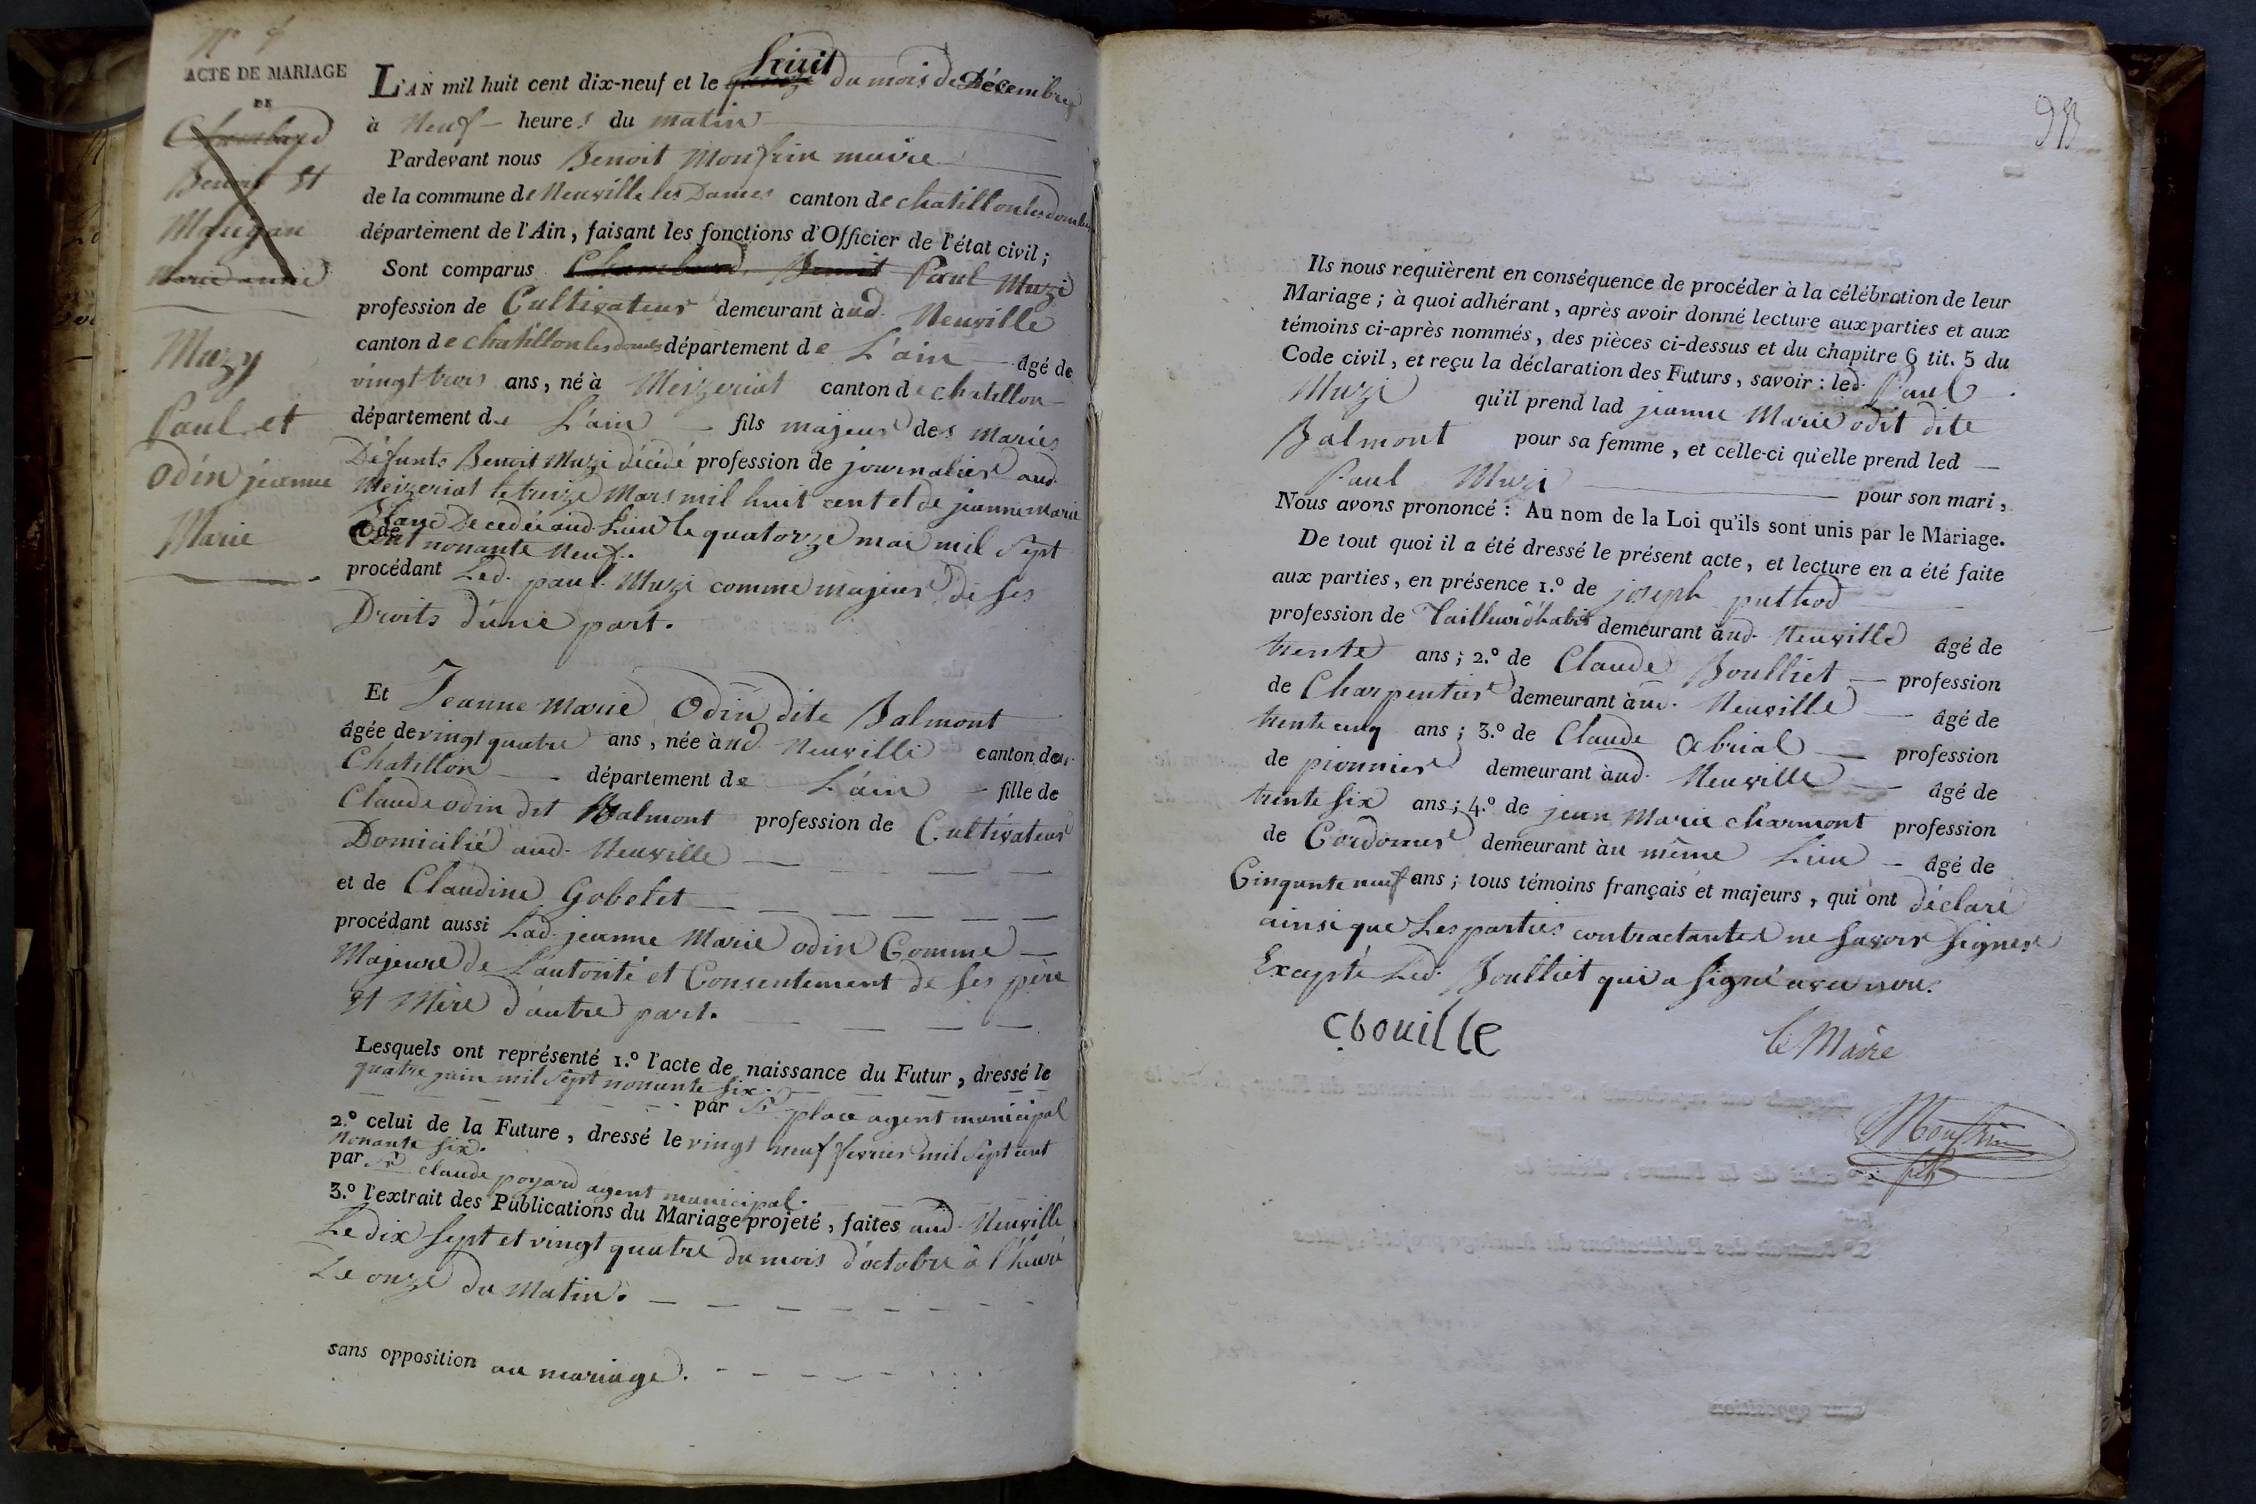 N° 9
ACTE DE MARIAGE
DE
Chambard
Benoit Et
Maugan
Marie anne
Muzy
Paul et
Odin jeanne
Marie
L'AN mil huit cent dix-neuf et le quinze huit du mois de Décembre
à Neuf heures du matin
Pardevant nous Benoit Monfrin maire
de la commune de Neuville les Dames canton de chatillon les dombes
département de l'Ain, faisant les fonctions d'Officier de l'état civil;
Sont comparus Chambard Benoit Paul Muzi
profession de Cultivateur demeurant à aud. Neuville
canton de chatillon les dombes département de L'ain âgé de
vingt trois ans, né à Meizeriat canton de chatillon
département de L'ain fils majeur des mariés
Défunts Benoit Muzi décédé profession de journalier aud.
Meizeriat le treize Mars mil huit cent et de jeanne marie
et de
Decedée aud. Lieu le quatorze mai mil sept
Cent nonante Neuf.
procédant Led. paul Muzi comme majeur de ses
Droits d'une part.
Et Jeanne Marie Odin dite Balmont
âgée de vingt quatre ans, née à aud Neuville canton de
Chatillon département de L'ain fille de
Claude odin dit Balmont profession de Cultivateur
Domicilié aud. Neuville
et de Claudine Gobelet
procédant aussi Lad. jeanne Marie odin Comme
Majeure de L'autorité et Consentement de ses père
Et Mère d'autre part.
Lesquels ont représenté 1.° l'acte de naissance du Futur, dressé le
quatre juin mil sept nonante six.
par Sr. place agent municipal
2.° celui de la Future, dressé le vingt neuf fevrier mil sept cent
nonante six.
par Sr. claude poyard agent municipal.
3.° l'extrait des Publications du Mariage projeté, faites aud. Neuville
Le dix sept et vingt quatre du mois d'octobre à l'heure
De onze du Matin.
sans opposition au mariage.
Ils nous requièrent en conséquence de procéder à la célébration de leur
Mariage; à quoi adhérant, après avoir donné lecture aux parties et aux
témoins ci-après nommés, des pièces ci-dessus et du chapitre 6 tit. 5 du
Code civil, et reçu la déclaration des Futurs, savoir: led. Paul
Muzi qu'il prend lad jeanne Marie odit dite
Balmont pour sa femme, et celle-ci qu'elle prend led
Paul Muzi pour son mari,
Nous avons prononcé: Au nom de la Loi qu'ils sont unis par le Mariage.
De tout quoi il a été dressé le présent acte, et lecture en a été faite
aux parties, en présence 1.° de joseph puthod
profession de Tailleur d'habis demeurant à aud. Neuville âgé de
trente ans; 2.° de Claude Boulliet profession
de Charpentier demeurant à au. Neuville âgé de
trente cinq ans; 3.° de Claude Abrial profession
de pionnier demeurant à aud. Neuville âgé de
trente six ans; 4.° de jean Marie charmont profession
de Cordonier demeurant à au même Lieu âgé de
Cinquante neuf ans; tous témoins français et majeurs, qui ont déclaré
ainsi que Les parties contractantes ne savoir signer
Excepté Led. Boulliet qui a signé avec nous.
Cbouille
le Maire
Monfrin